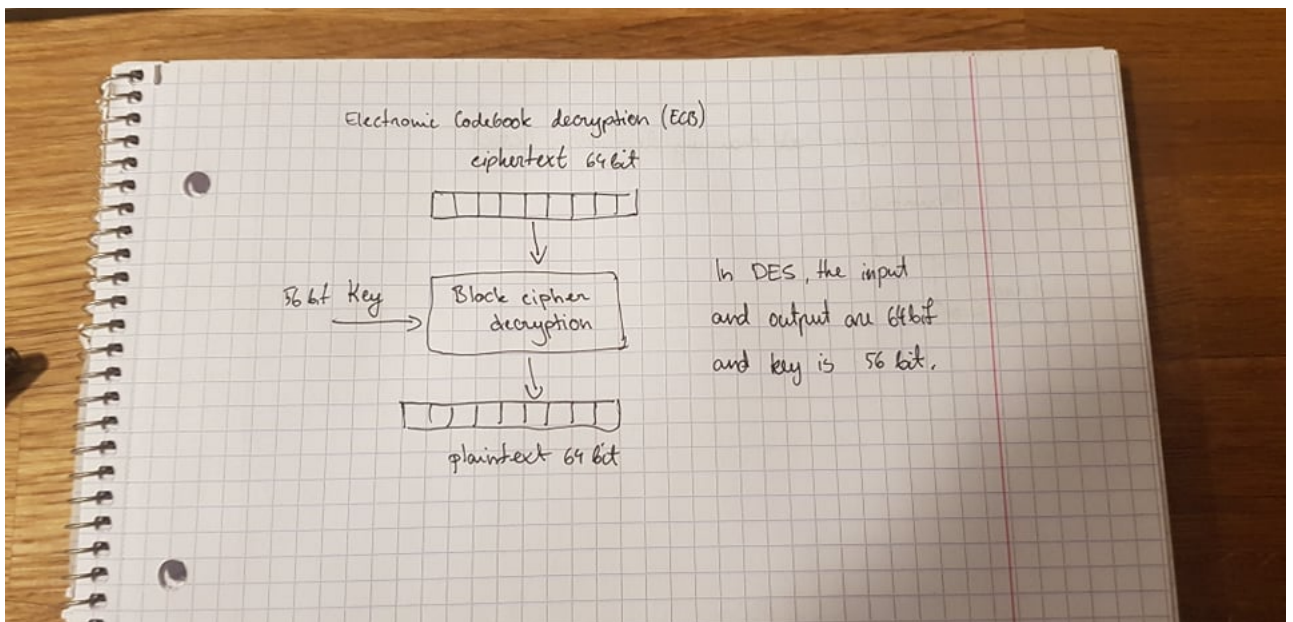 Electronic Codebook decryption (ECB)
ciphertext 64 bit
56 bit Key
Block cipher
decryption
plaintext 64 bit
In DES, the input
and output are 64 bit
and key is 56 bit.